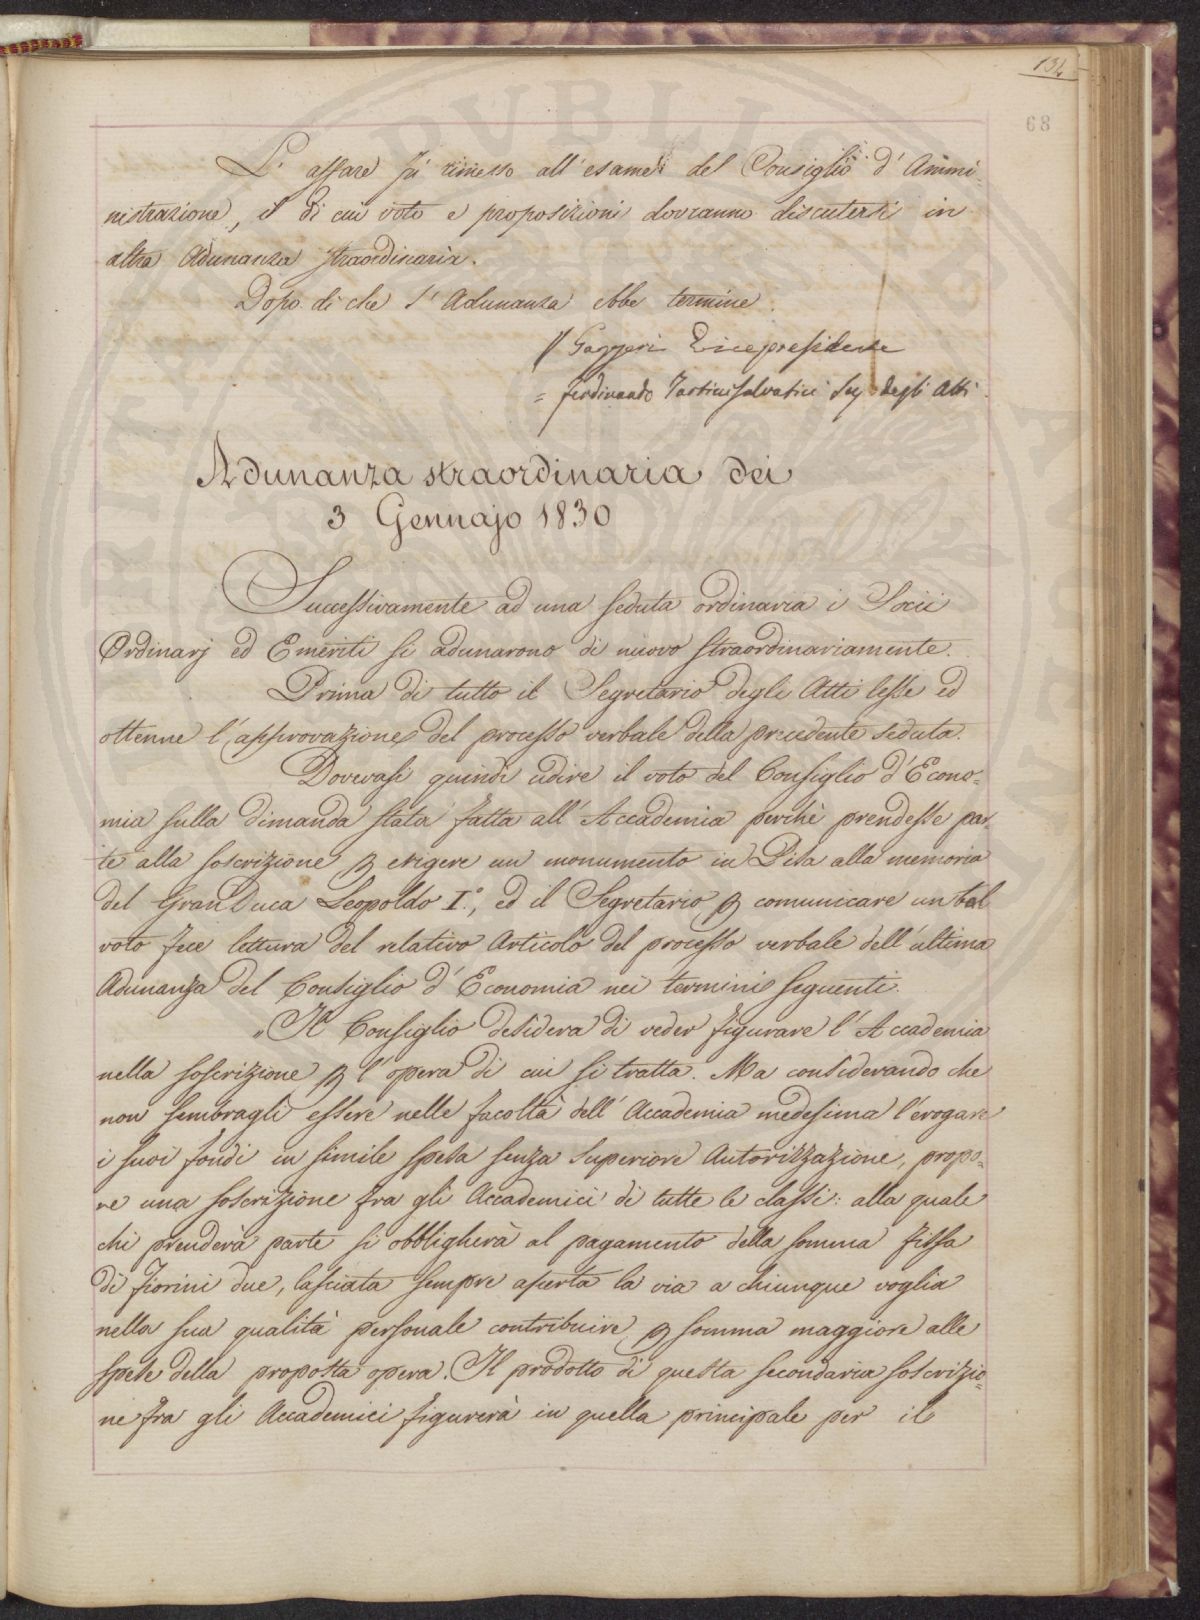 134
68
L'affare fù rimesso all'esame del Consiglio d'Ammi-
nistrazione, il di cui voto e proposizioni dovranno discutersi in
altra Adunanza straordinaria.
Dopo di che l'Adunanza ebbe termine.
Gazzeri Vicepresidente
= Ferdinando Tartini Salvatici Seg. degli Atti
Adunanza straordinaria dei
3 Gennajo 1830
Successivamente ad una seduta ordinaria i Socii
Ordinarj ed Emeriti si adunarono di nuovo straordinariamente.
Prima di tutto il Segretario degli Atti lesse ed
ottenne l'approvazione del processo verbale della precedente seduta.
Dovevasi quindi udire il voto del Consiglio d'Econo-
mia sulla dimanda stata fatta all'Accademia perchè prendesse par-
te alla soscrizione p erigere un monumento in Pisa alla memoria
del Gran Duca Leopoldo I.°, ed il Segretario p comunicare un tal
voto fece lettura del relativo Articolo del processo verbale dell'ultima
Adunanza del Consiglio d'Economia nei termini seguenti.
"Il Consiglio desidera di veder figurare l'Accademia
nella soscrizione p l'opera di cui si tratta. Ma considerando che
non sembragli essere nelle facoltà dell'Accademia medesima l'erogare
i suoi fondi in simile spesa senza superiore Autorizzazione, propo-
ne una soscrizione fra gli Accademici di tutte le classi: alla quale
chi prenderà parte si obbligherà al pagamento della somma fissa
di fiorini due, lasciata sempre aperta la via a chiunque voglia
nella sua qualità personale contribuire p somma maggiore alle
spese della proposta opera. Il prodotto di questa secondaria soscrizio-
ne fra gli Accademici figurerà in quella principale per il